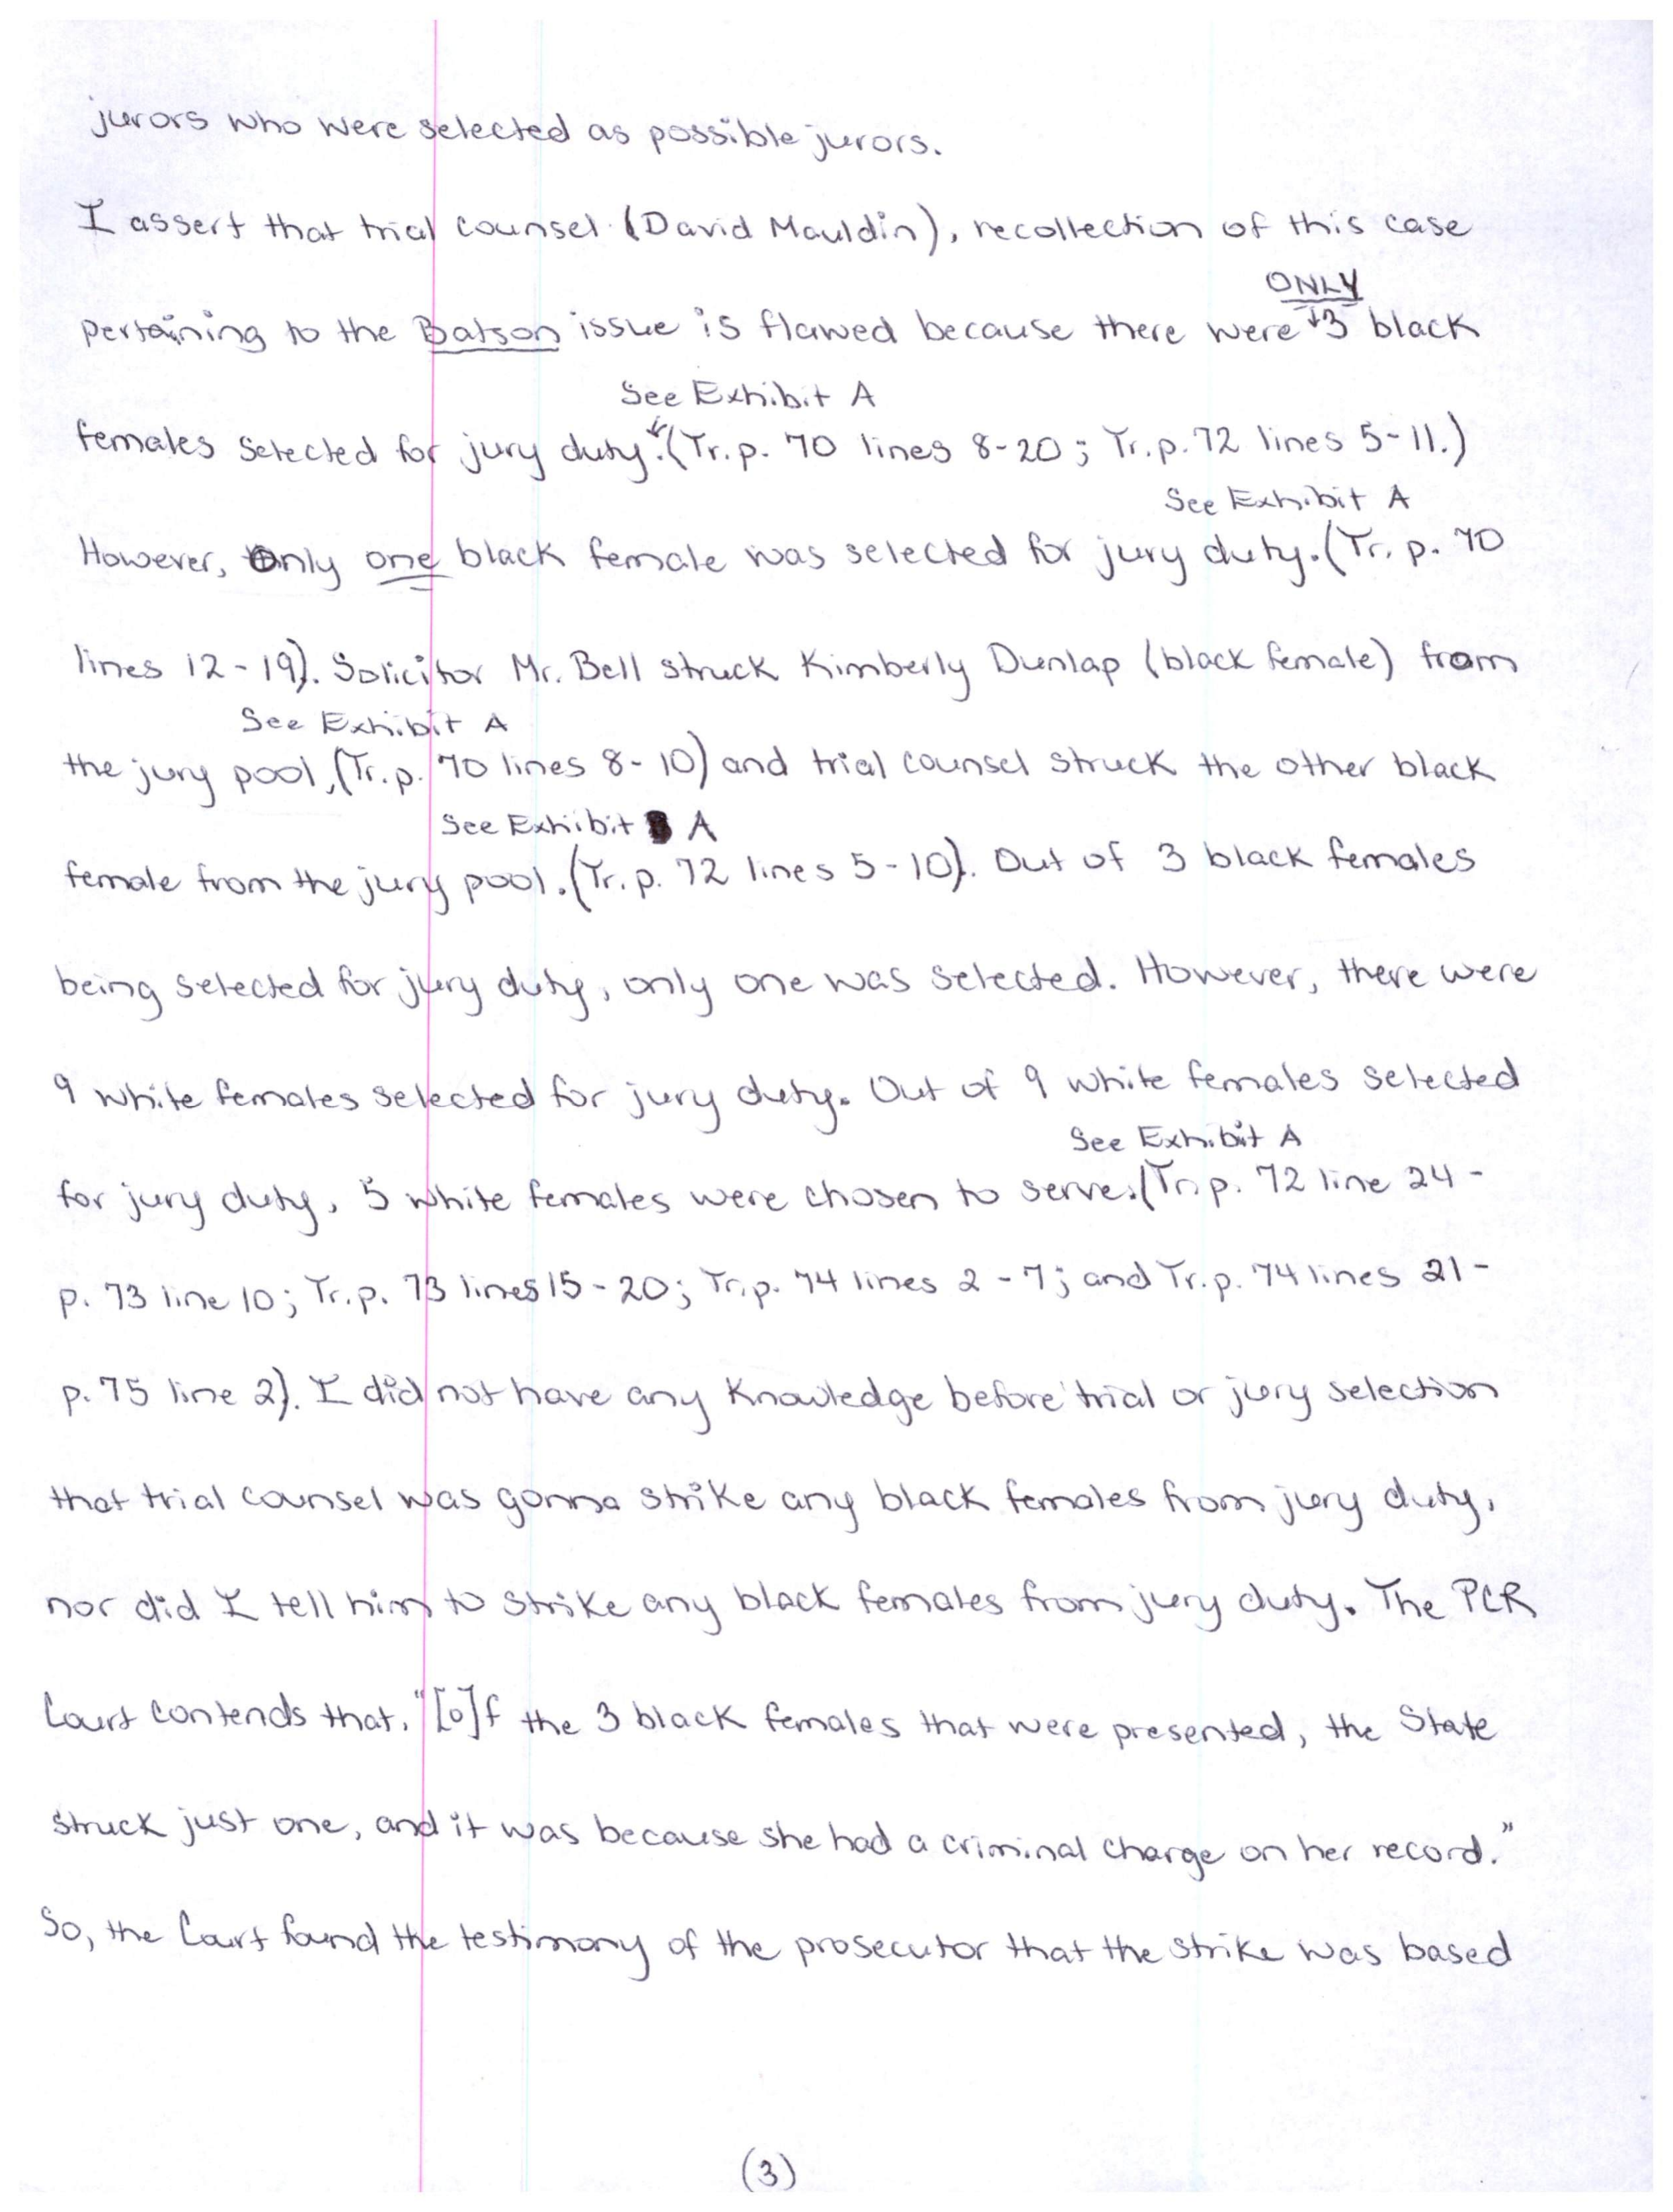 jurors who were selected as possible jurors.
I assert that trial counsel (David Mauldin), recollection of this case
ONLY
pertaining to the Batson issue is flawed because there were 3 black
See Exhibit A
females selected for jury duty. (Tr. p. 70 lines 8-20; Tr. p. 72 lines 5-11.)
See Exhibit A
However, Only one black female was selected for jury duty. (Tr. p. 70
lines 12-19). Solicitor Mr. Bell struck Kimberly Dunlap (black female) from
See Exhibit A
the jury pool, (Tr. p. 70 lines 8-10) and trial counsel struck the other black
See Exhibit A
female from the jury pool. (Tr. p. 72 lines 5-10). Out of 3 black females
being selected for jury duty, only one was selected. However, there were
9 white females selected for jury duty. Out of 9 white females selected
See Exhibit A
for jury duty, 5 white females were chosen to serve. (Tr. p. 72 line 24 -
p. 73 line 10; Tr. p. 73 lines 15-20; Tr. p. 74 lines 2-7; and Tr. p. 74 lines 21-
p. 75 line 2). I did not have any knowledge before trial or jury selection
that trial counsel was gonna strike any black females from jury duty,
nor did I tell him to strike any black females from jury duty. The PCR
Court contends that, "[o]f the 3 black females that were presented, the State
struck just one, and it was because she had a criminal charge on her record."
So, the Court found the testimony of the prosecutor that the strike was based
(3)